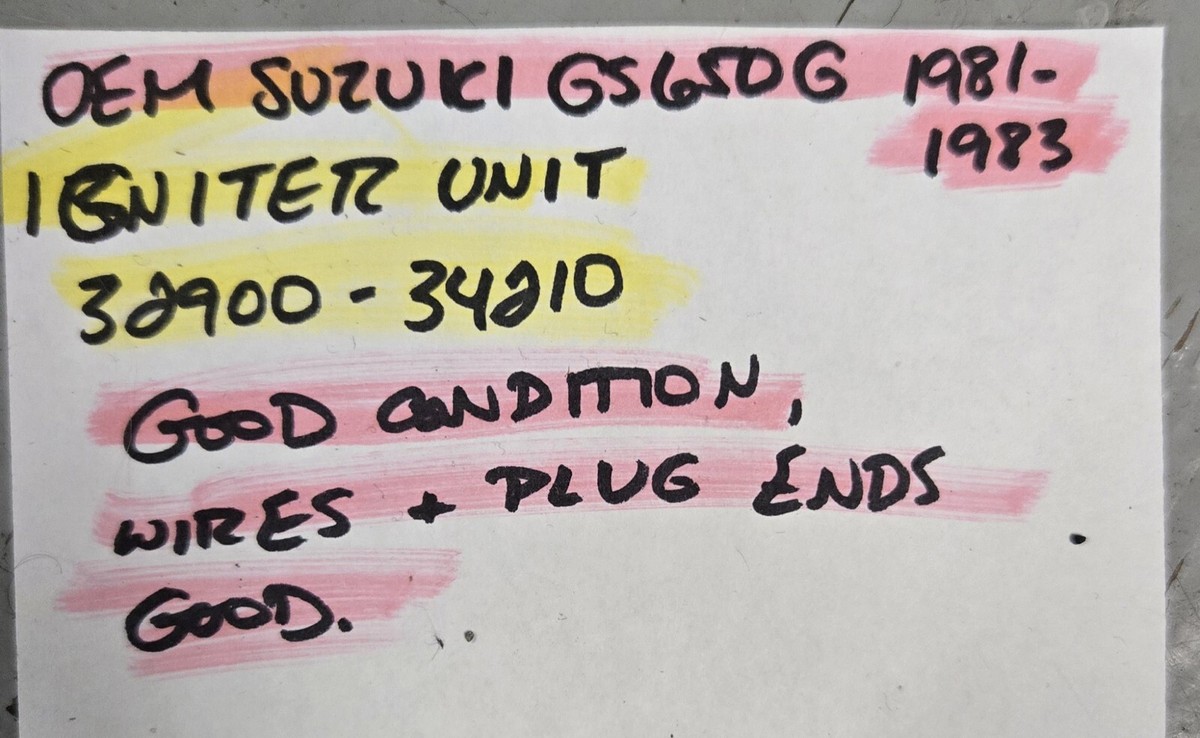 OEM SUZUKI GS650G 1981-
1983
IGNITER UNIT
32900 - 34210
GOOD CONDITION,
WIRES + PLUG ENDS
GOOD.